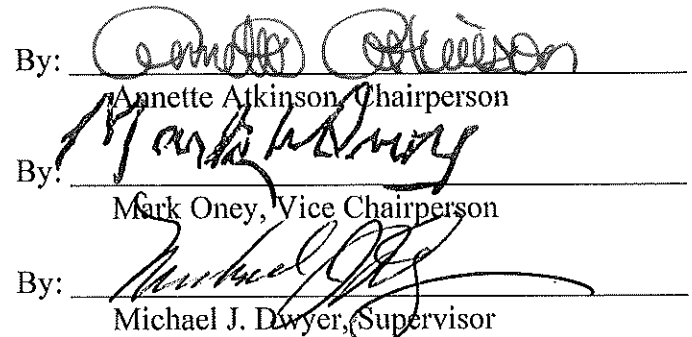 By: Annette Atkinson
Annette Atkinson, Chairperson
By:
Mark Oney, Vice Chairperson
By:
Michael J. Dwyer, Supervisor